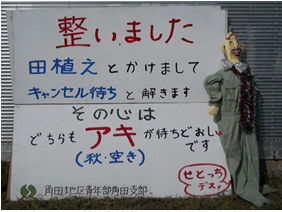 整いました
田植えとかけまして
キャンセル待ちと解きます
その心は
どちらもアキが待ちどおしいです
(秋・空き)
せとっち
デス。
角田地区青年部角田支部